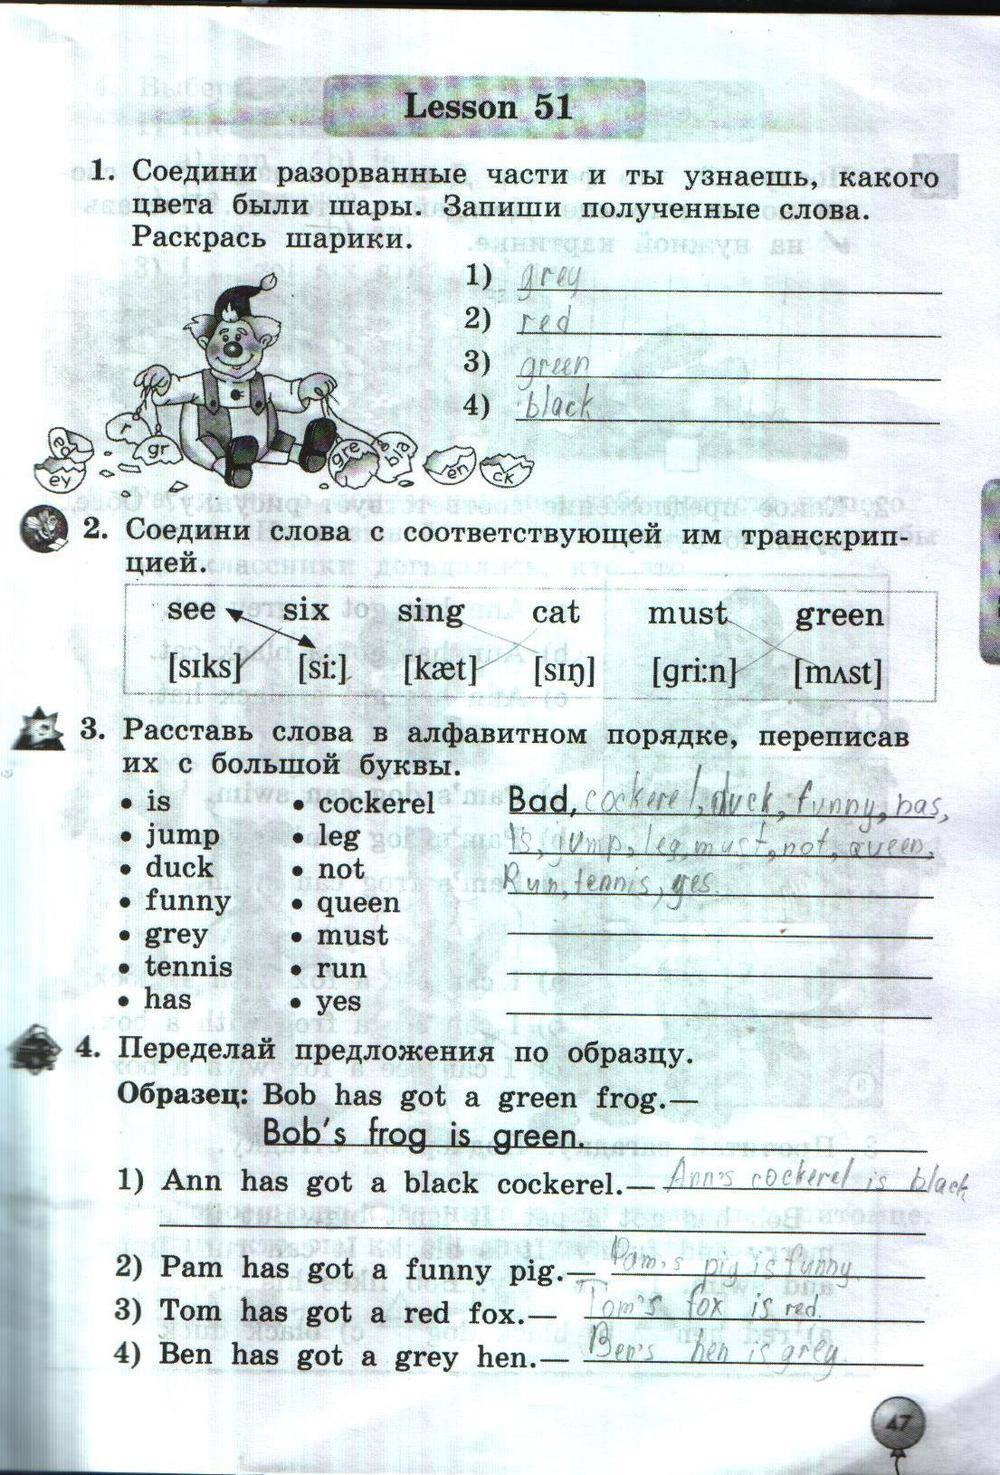 Lesson 51
1. Соедини разорванные части и ты узнаешь, какого
цвета были шары. Запиши полученные слова.
Раскрась шарики.
1) grey
2) red
3) green
4) black
ed
ey
r
gr
gre
bla
en
ck
2. Соедини слова с соответствующей им транскрип-
цией.
see six sing cat must green
[sɪks] [si:] [kæt] [sɪŋ] [gri:n] [mʌst]
3. Расставь слова в алфавитном порядке, переписав
их с большой буквы.
• is • cockerel Bad, cockerel, duck, funny, has,
• jump • leg Is, jump, leg, must, not, queen,
• duck • not Run, tennis, yes.
• funny • queen
• grey • must
• tennis • run
• has • yes
4. Переделай предложения по образцу.
Образец: Bob has got a green frog.—
Bob's frog is green.
1) Ann has got a black cockerel.— Ann's cockerel is black
2) Pam has got a funny pig.— Pam's pig is funny.
3) Tom has got a red fox.— Tom's fox is red.
4) Ben has got a grey hen.— Ben's hen is grey.
47